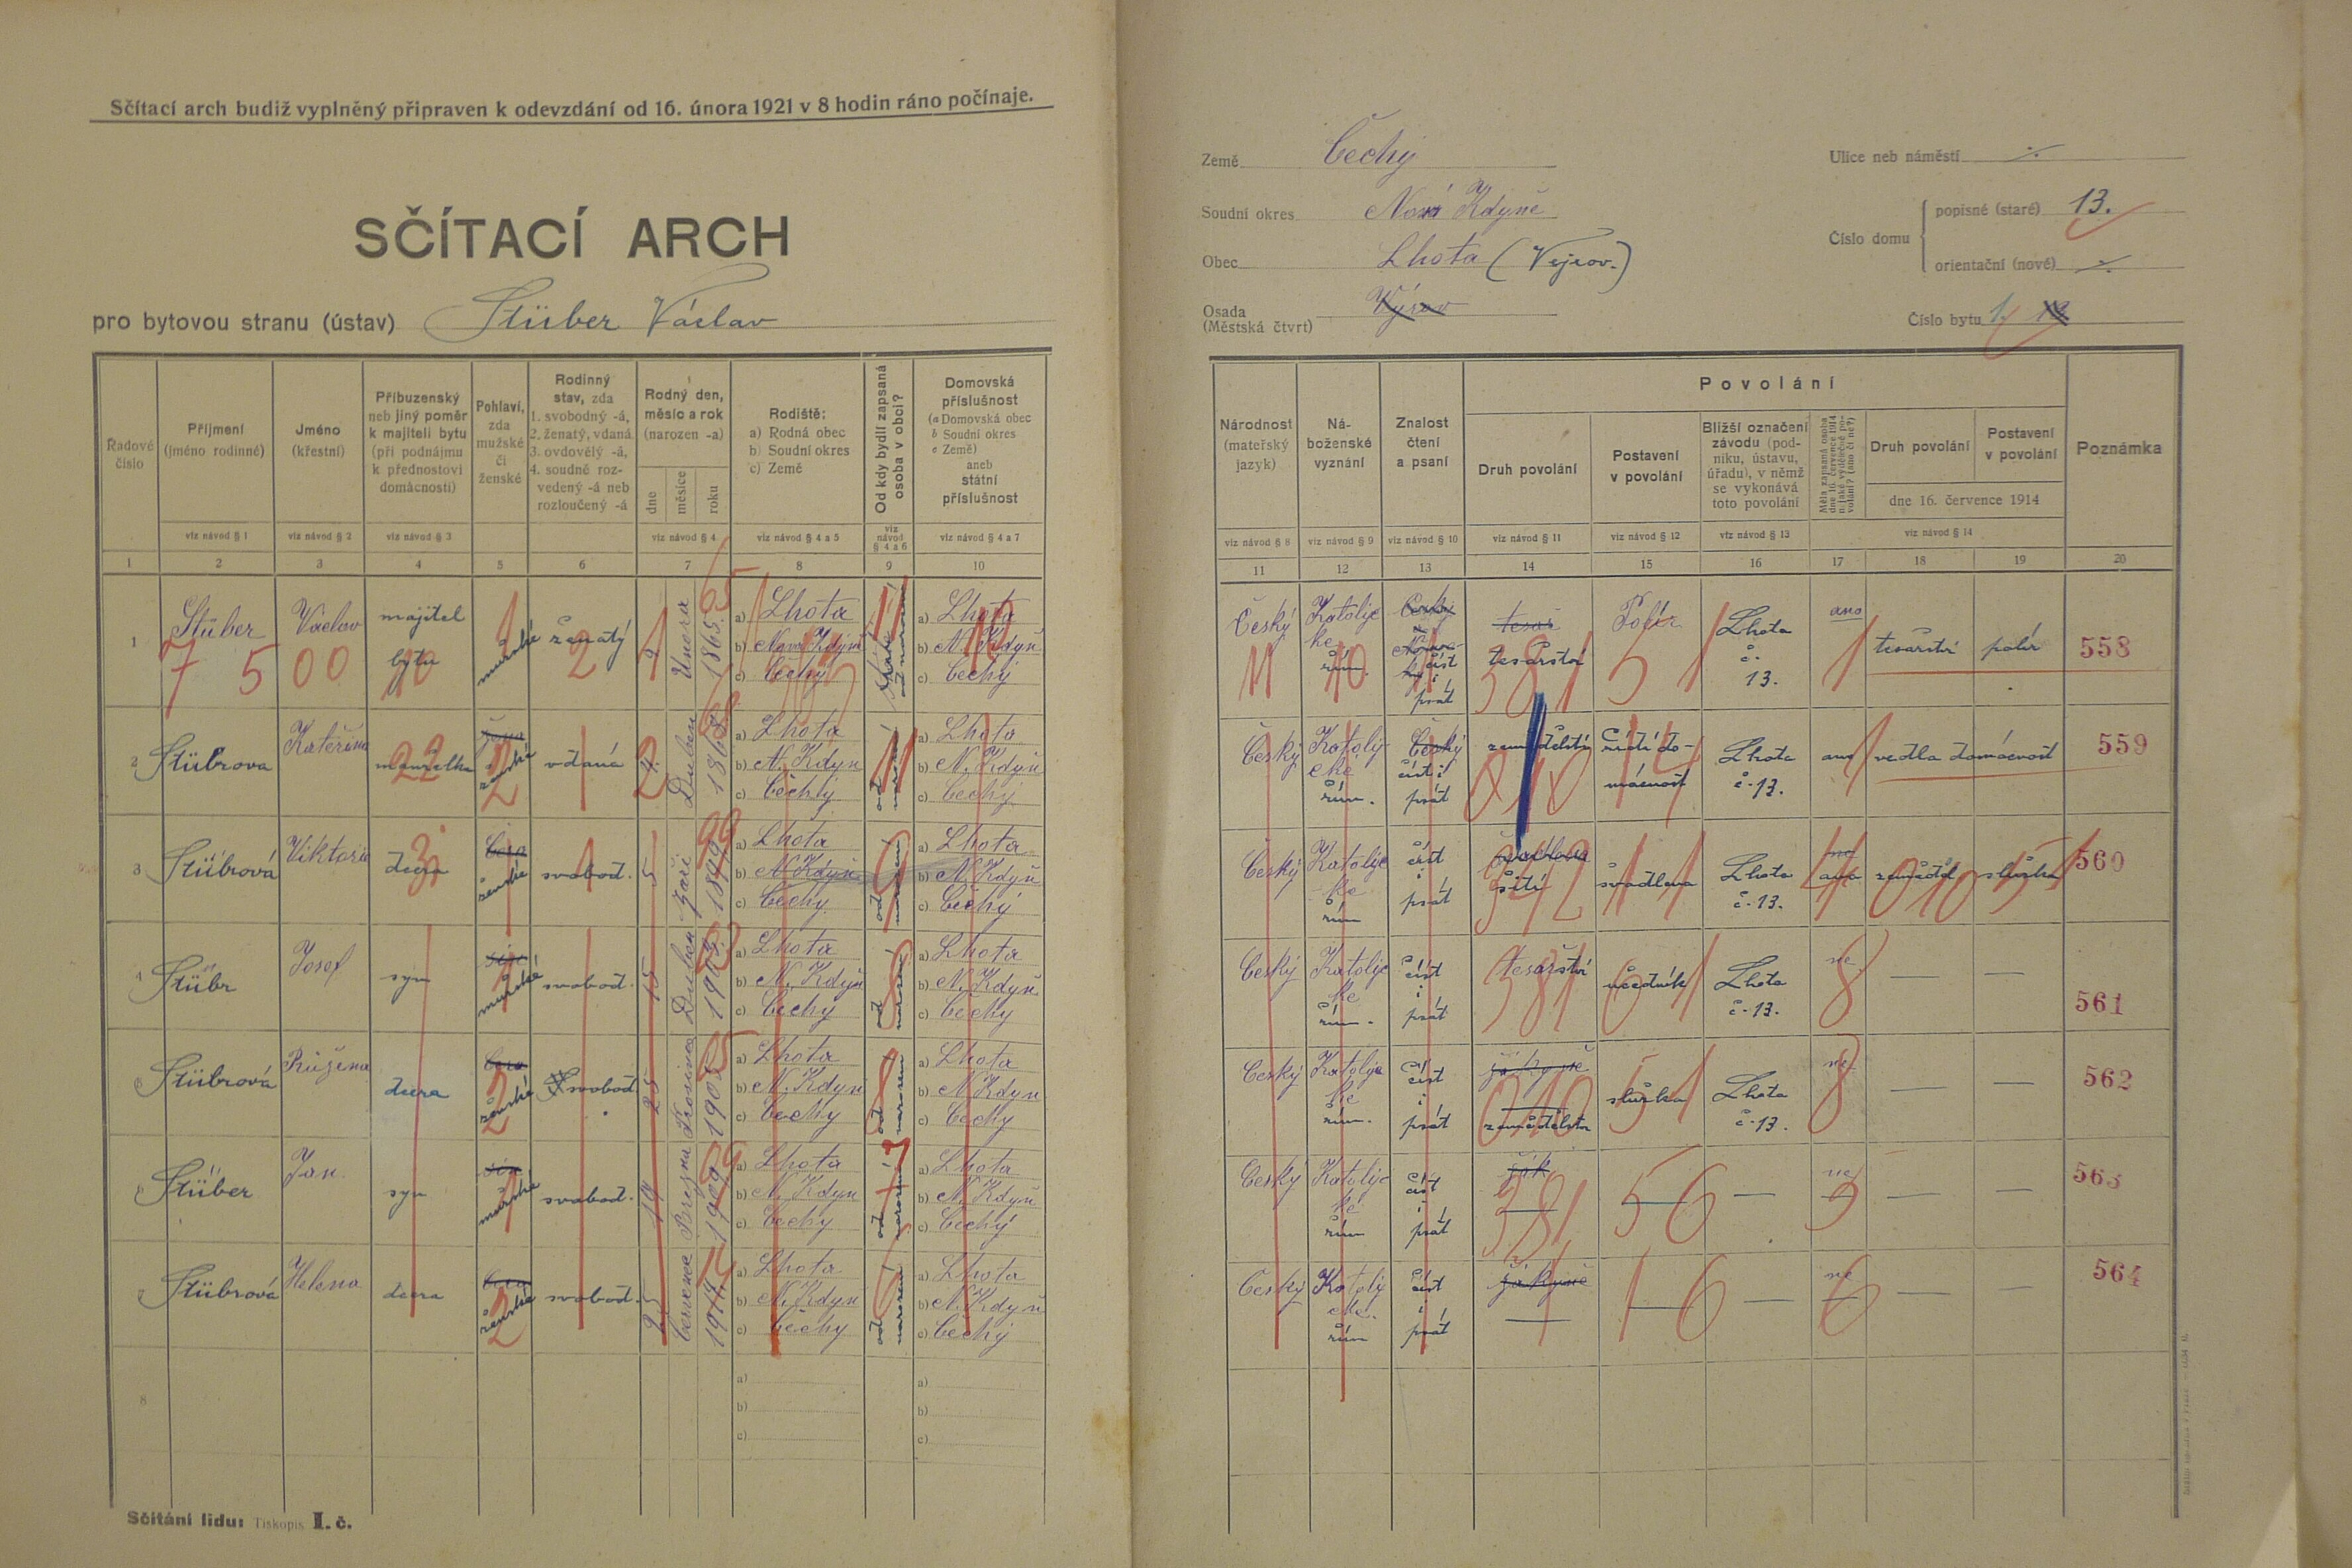 Sčítací arch budiž vyplněný připraven k odevzdání od 16. února 1921 v 8 hodin ráno počínaje.
SČÍTACÍ ARCH
pro bytovou stranu (ústav) Stüber Václav
Řadové číslo
Příjmení (jméno rodinné)
Jméno (křestní)
Příbuzenský neb jiný poměr k majiteli bytu (při podnájmu k přednostovi domácnosti)
Pohlaví, zda mužské či ženské
Rodinný stav, zda 1. svobodný -á, 2. ženatý, vdaná 3. ovdovělý -á, 4. soudně rozvedený -á neb rozloučený -á
Rodný den, měsíc a rok (narozen -a)
dne měsíce roku
Rodiště: a) Rodná obec b) Soudní okres c) Země
Od kdy bydlí zapsaná osoba v obci?
Domovská příslušnost (a Domovská obec b Soudní okres c Země) aneb státní příslušnost
viz návod § 1 viz návod § 2 viz návod § 3 viz návod § 4 viz návod § 4 a 5 viz návod § 4 a 6 viz návod § 4 a 7
1 2 3 4 5 6 7 8 9 10
1 Stüber Václav majitel bytu mužské ženatý 2 Února 1865 a) Lhota b) Nová Kdyně c) Čechy a) Lhota b) N. Kdyň c) Čechy
7 5 00
2 Stübrova Kateřina manželka ženské vdaná 4. Duben 1868 a) Lhota b) N. Kdyň c) Čechy od narození a) Lhota b) N. Kdyň c) Čechy
3 Stübrová Viktorie dcera ženské svobod. 5 Září 1899 a) Lhota b) N. Kdyň c) Čechy od narození a) Lhota b) N. Kdyň c) Čechy
4 Stübr Josef syn mužské svobod. 15 Duben 1903 a) Lhota b) N. Kdyň c) Čechy od narození a) Lhota b) N. Kdyň c) Čechy
Stübrová Růžena dcera ženské Svobod. 25 Prosince 1905 a) Lhota b) N. Kdyn c) Čechy od narození a) Lhota b) N. Kdyn c) Čechy
Stüber Jan. syn mužské svobod. 19 Března 1909 a) Lhota b) N. Kdyn c) Čechy od narození a) Lhota b) N. Kdyň c) Čechy
Stübrová Helena dcera ženské svobod. 25 července 1914 a) Lhota b) N. Kdyn c) Čechy od narození a) Lhota b) N. Kdyň c) Čechy
8 a) b) c) a) b) c)
Sčítání lidu: Tiskopis I. č.
Země Čechy
Soudní okres Nová Kdyně
Obec Lhota (Vejrov.)
Osada (Městská čtvrť) Výrov
Ulice neb náměstí
Číslo domu
popisné (staré) 13.
orientační (nové)
Číslo bytu 1.
Národnost (mateřský jazyk)
Náboženské vyznání
Znalost čtení a psaní
Povolání
Druh povolání
Postavení v povolání
Bližší označení závodu (podniku, ústavu, úřadu), v němž se vykonává toto povolání
Měla zapsaná osoba dne 16. července 1914 nějaké výdělečné povolání? (ano či ne?)
Druh povolání
Postavení v povolání
dne 16. července 1914
Poznámka
viz návod § 8 viz návod § 9 viz návod § 10 viz návod § 11 viz návod § 12 viz návod § 13 viz návod § 14
11 12 13 14 15 16 17 18 19 20
Český Katolické řím. číst i psát tesař tesařství Polír Lhota č. 13. ano tesařství polír 558
Český Katolycké řím. Český číst i psát řídí domácnost Lhota č. 13. ano vedla domácnost 559
Český Katolycke řím číst i psát švadlena šití švadlena Lhota č. 13. ano zeměděl služka 560
Český Katolycke řím. číst i psát tesařství učedník Lhota č. 13. ne — — 561
Český Katolycke řím. číst i psát žákyně zemědělství služka Lhota č. 13. ne — — 562
Český Katolycké řím číst i psát žák — — — ne — — 563
Český Katolycké. řím číst i psát žákyně — — — ne — — 564